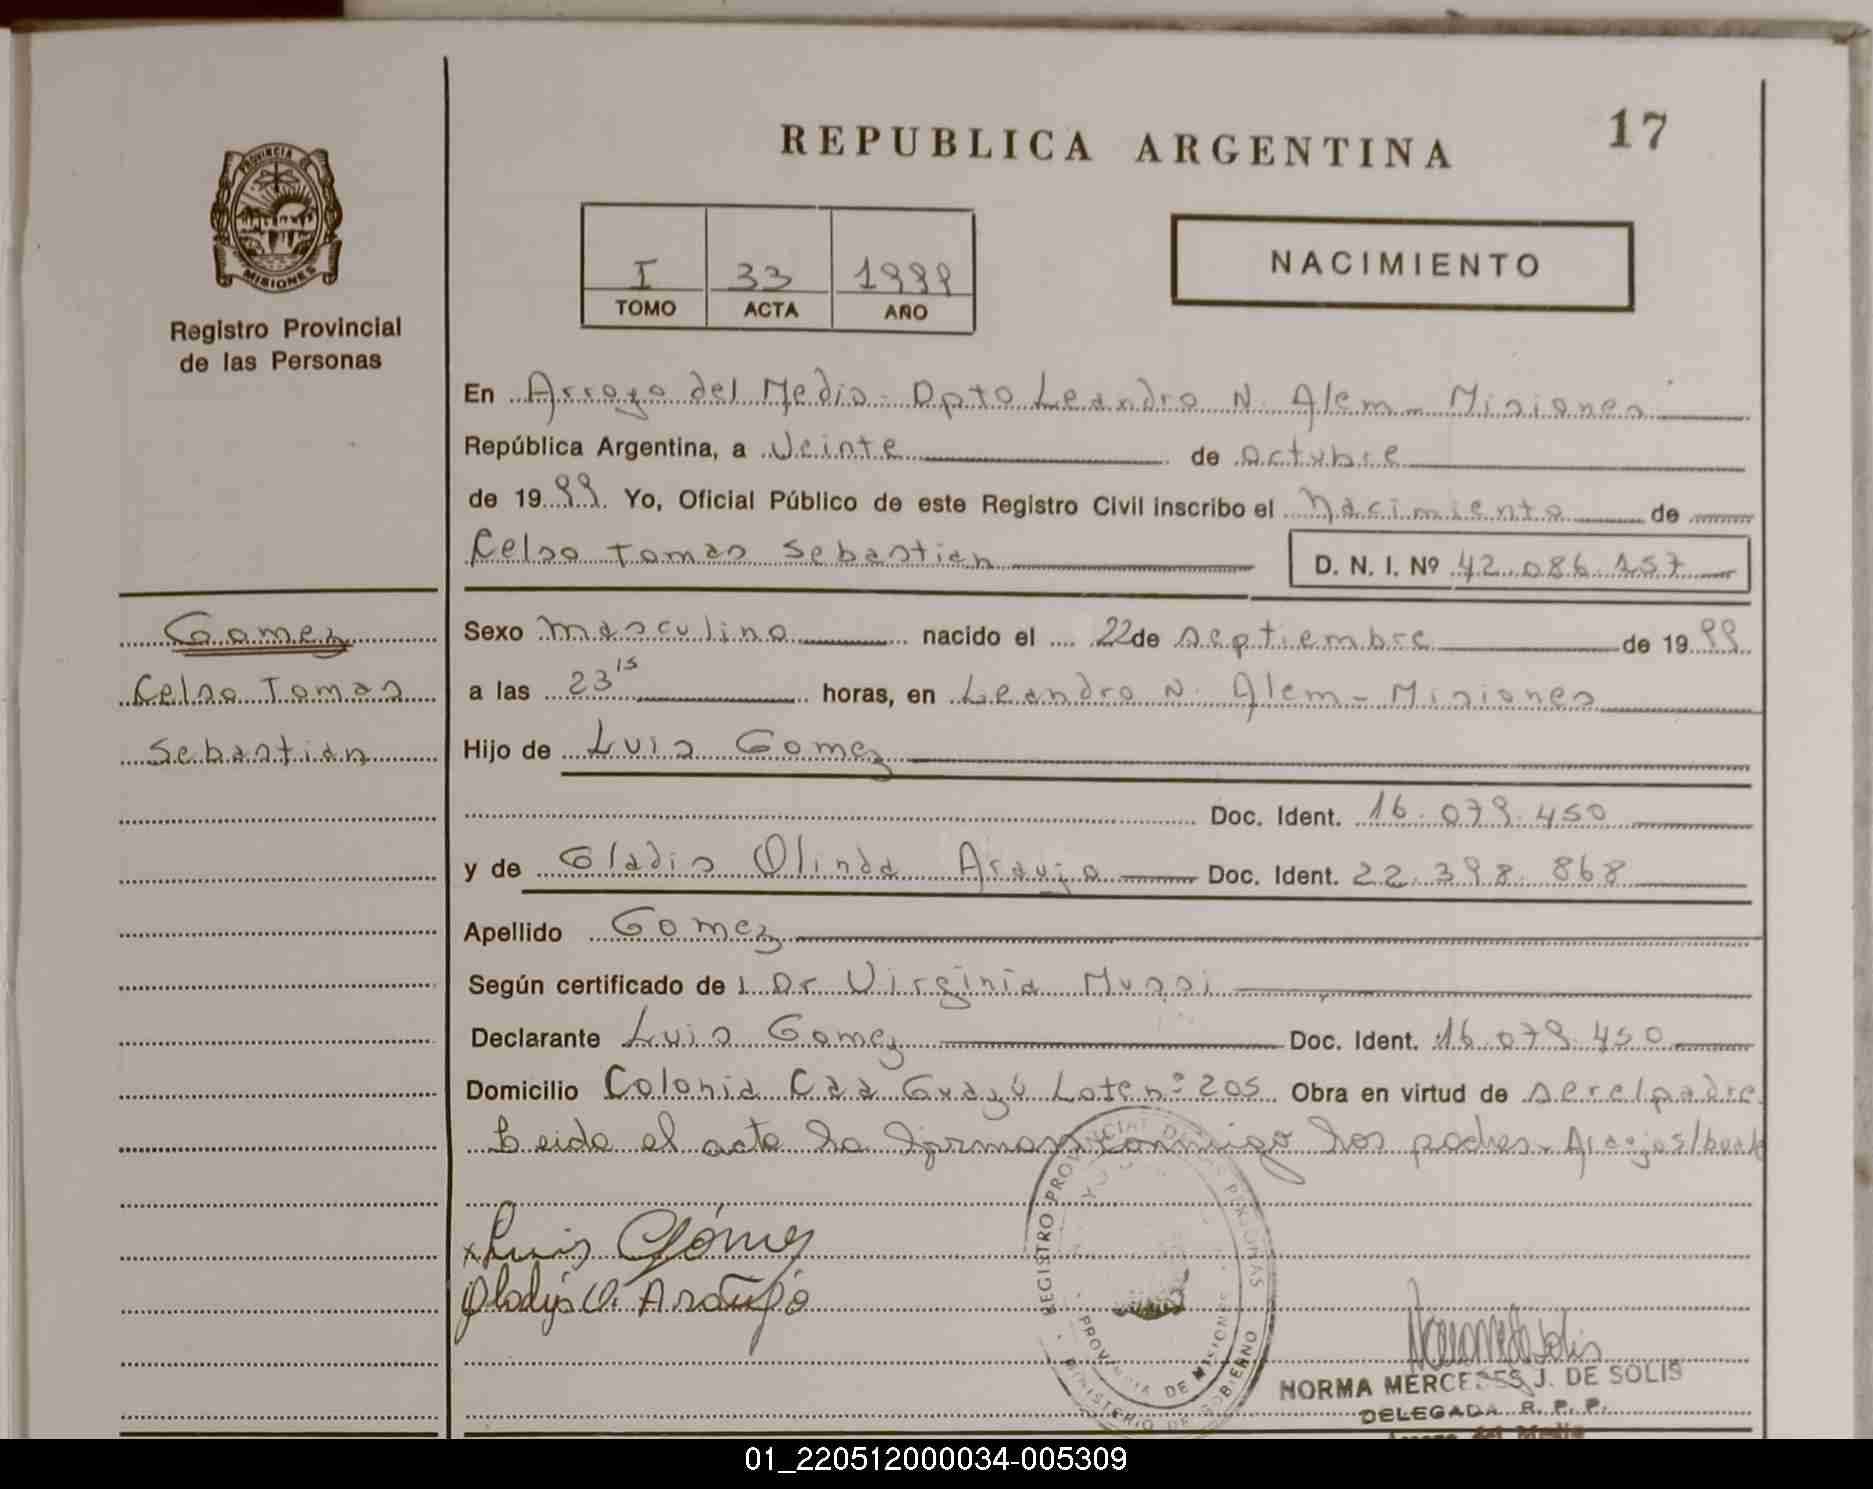 REPUBLICA ARGENTINA
17
PROVINCIA DE
MISIONES
Registro Provincial
de las Personas
I 33 1999
TOMO ACTA AÑO
NACIMIENTO
En Arroyo del Medio - Dpto Leandro N. Alem - Misiones
República Argentina, a Veinte de octubre
de 1999 Yo, Oficial Público de este Registro Civil inscribo el Nacimiento de
Celso Tomas Sebastian D. N. I. Nº 42.086.157
Gomez
Celso Tomas
Sebastian
Sexo masculino nacido el 22 de septiembre de 1999
a las 23 15 horas, en Leandro N. Alem - Misiones
Hijo de Luis Gomez
Doc. Ident. 16.079.450
y de Gladis Olinda Araujo Doc. Ident. 22.398.868
Apellido Gomez
Según certificado de Dr Virginia Mussi
Declarante Luis Gomez Doc. Ident. 16.079.450
Domicilio Colonia Caa Guazú Lote nº 205 Obra en virtud de ser el padre
Leida el acta la firman conmigo los padres -
x Luis Gómez
Gladys O. Araujo
REGISTRO PROVINCIAL DE LAS PERSONAS
PROVINCIA DE MISIONES
MINISTERIO DE GOBIERNO
NORMA MERCEDES J. DE SOLIS
DELEGADA R. P. P.
Arroyo del Medio
01_220512000034-005309